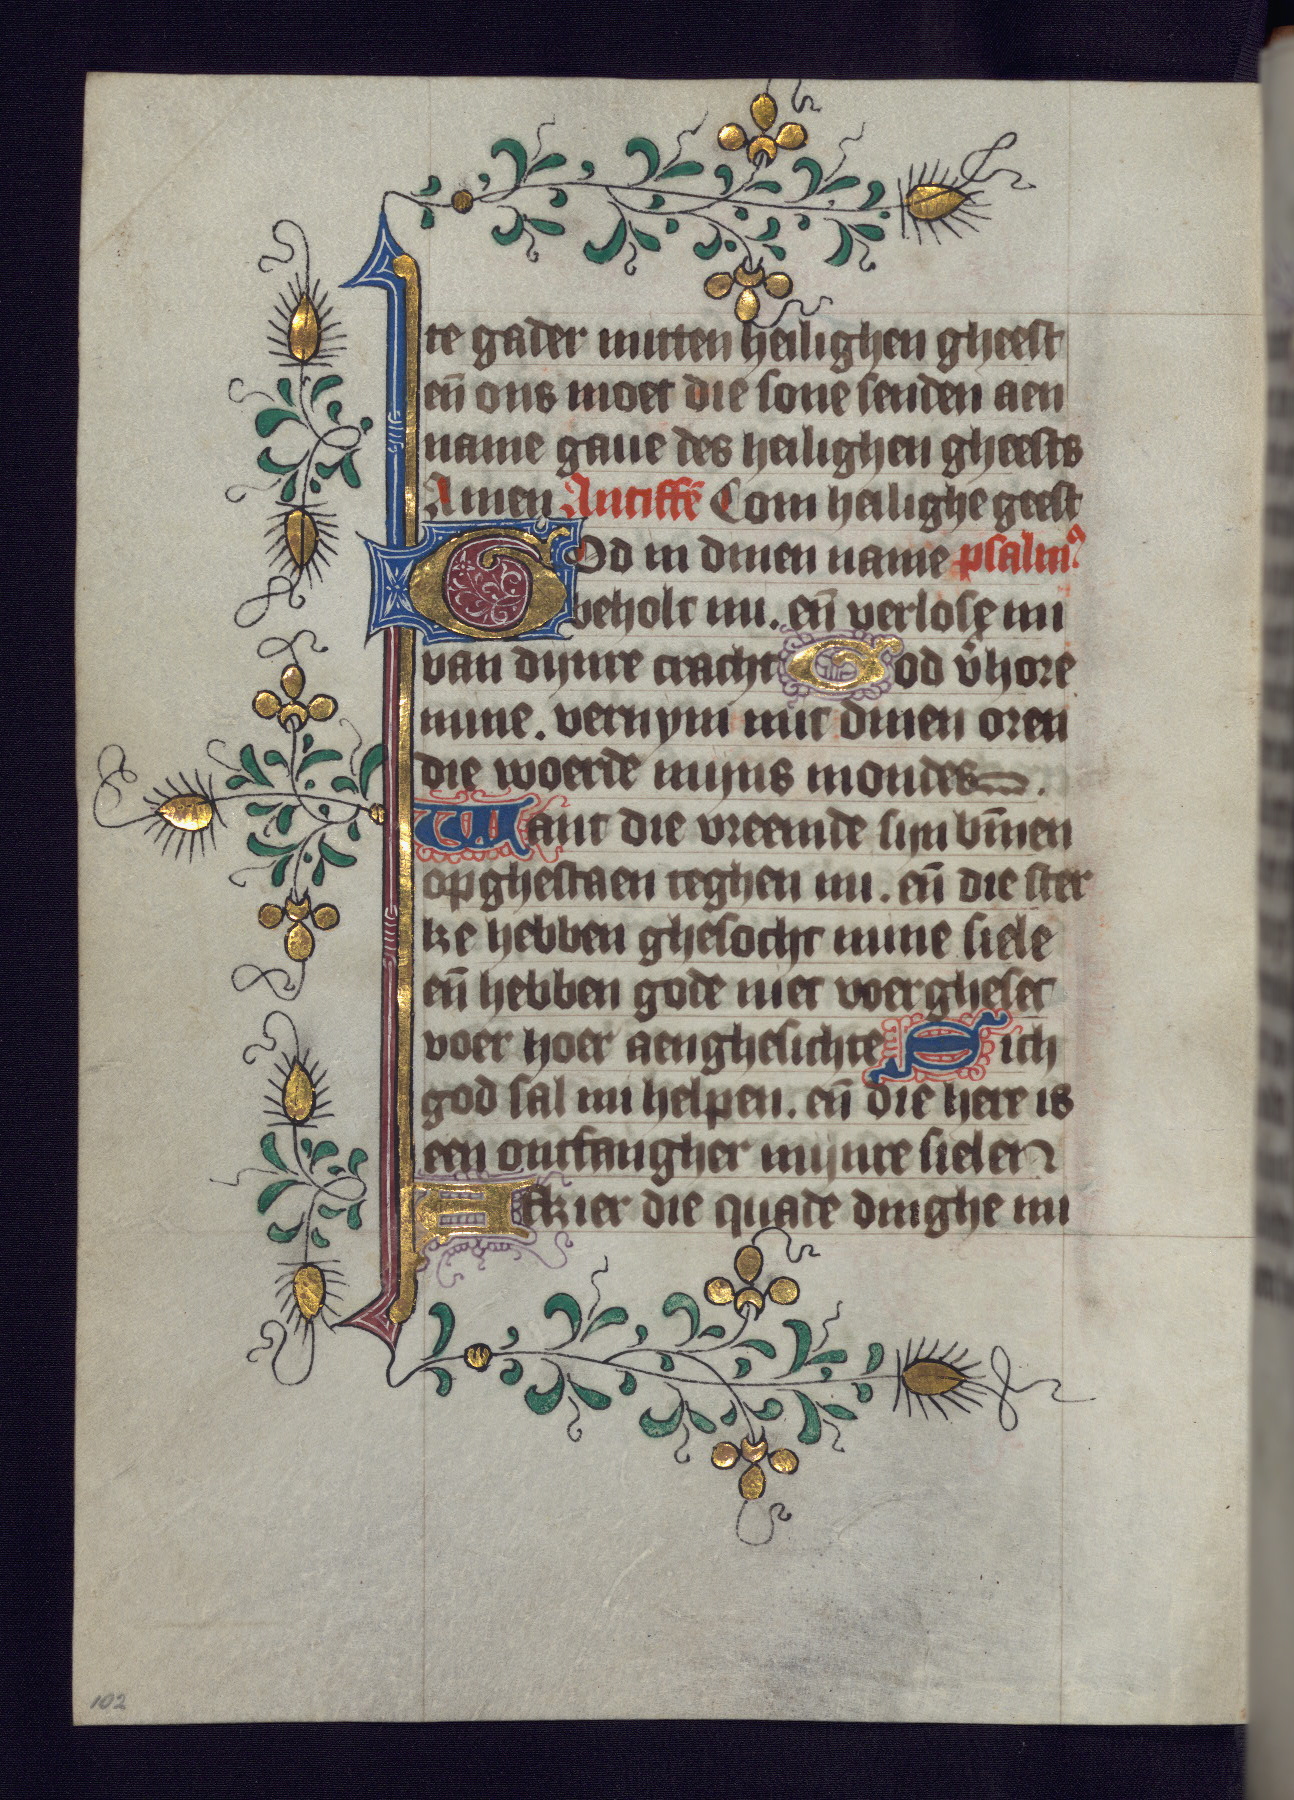 te gader mitten heilighen gheest
eñ ons moet die sone senden aen
name gaue des heilighen gheests
Amen Antiffē Com heilighe geest
God in dinen name psalm⁹
beholt mi. eñ verlose mi
van dijnre cracht God v̄hore
mine. vernym mit dinen oren
die woerde mijns mondes.
Want die vreemde sijn bīnen
opghestaen teghen mi. eñ die ster
ke hebben ghesocht mine siele
eñ hebben gode niet voergheset
voer hoer aenghesichte Dich
god sal mi helpen. eñ die here is
een ontfangher mijnre sielen
Akier die quade dinghe mi
102